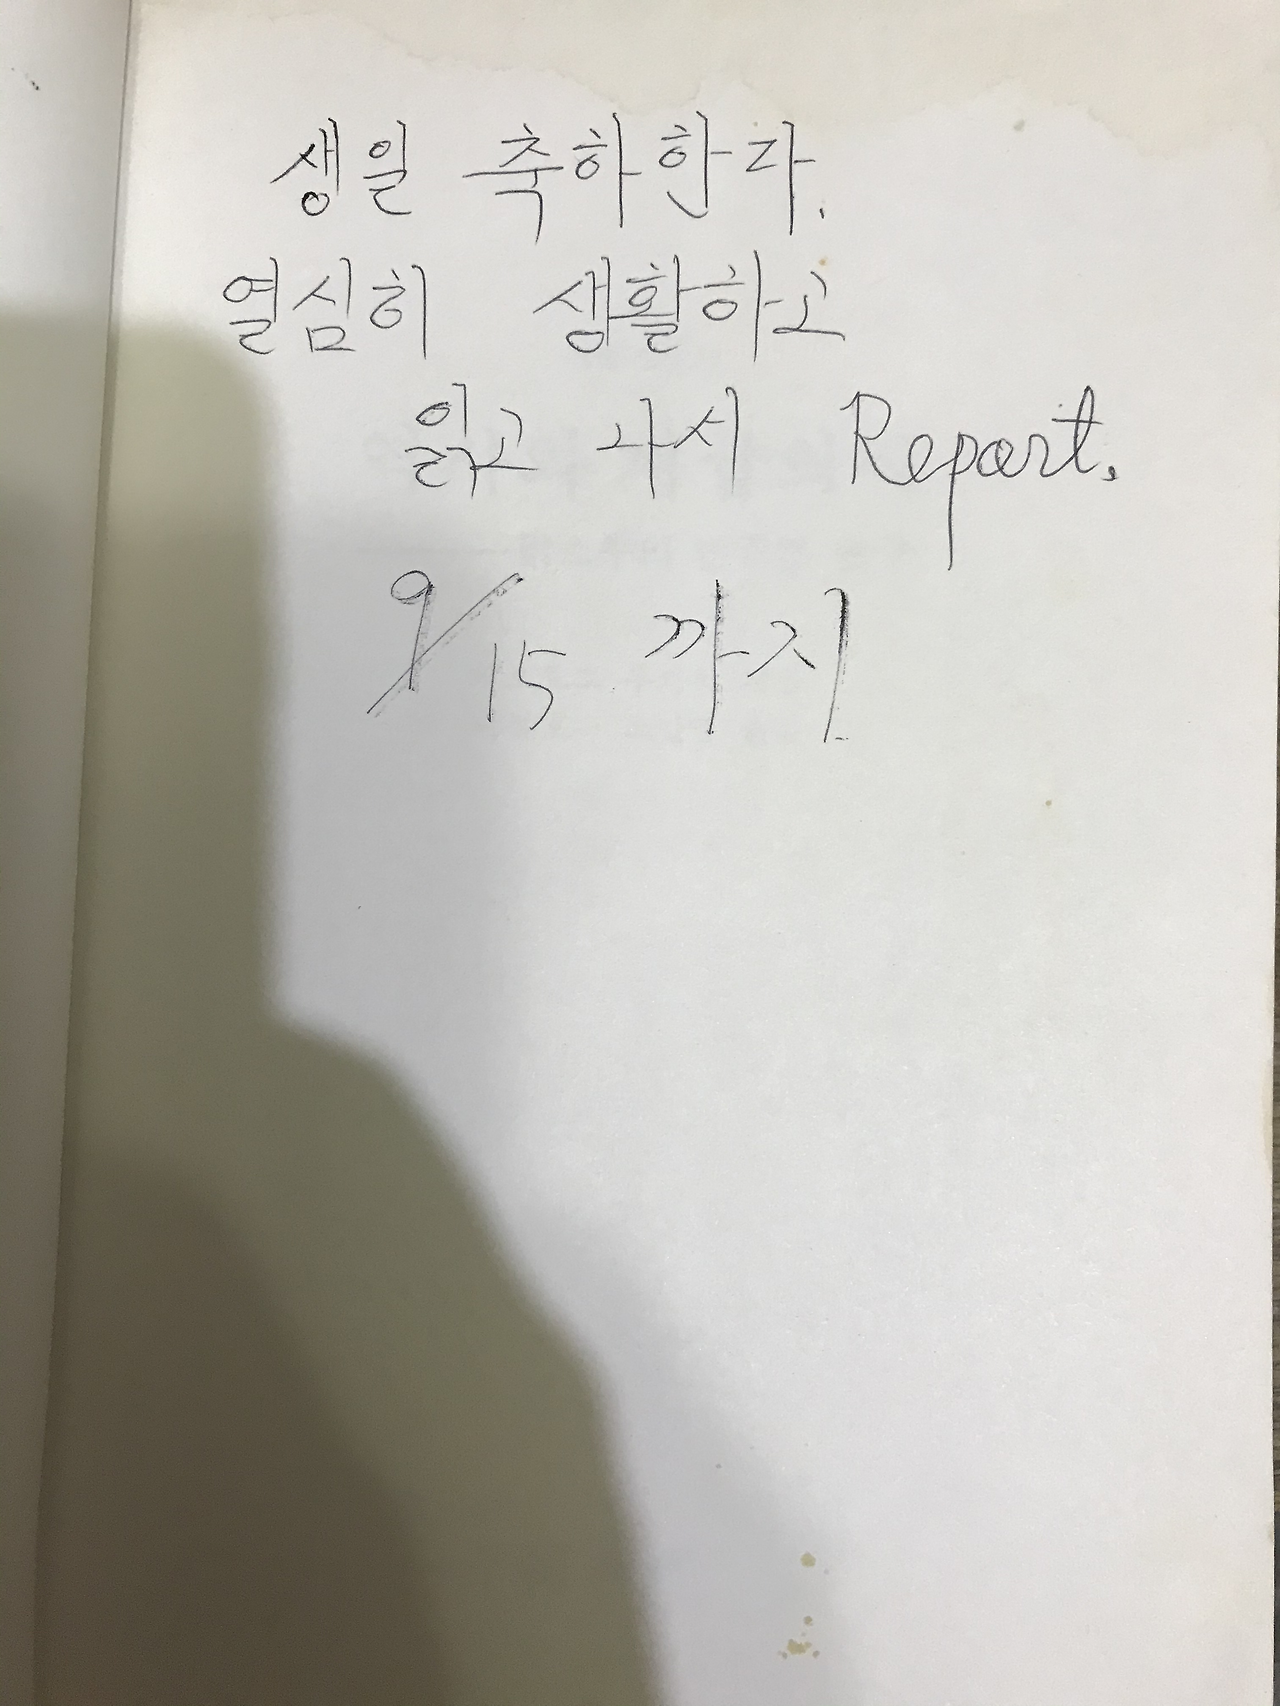 생일 축하한다.
열심히 생활하고
읽고 나서 Report.
9/15 까지